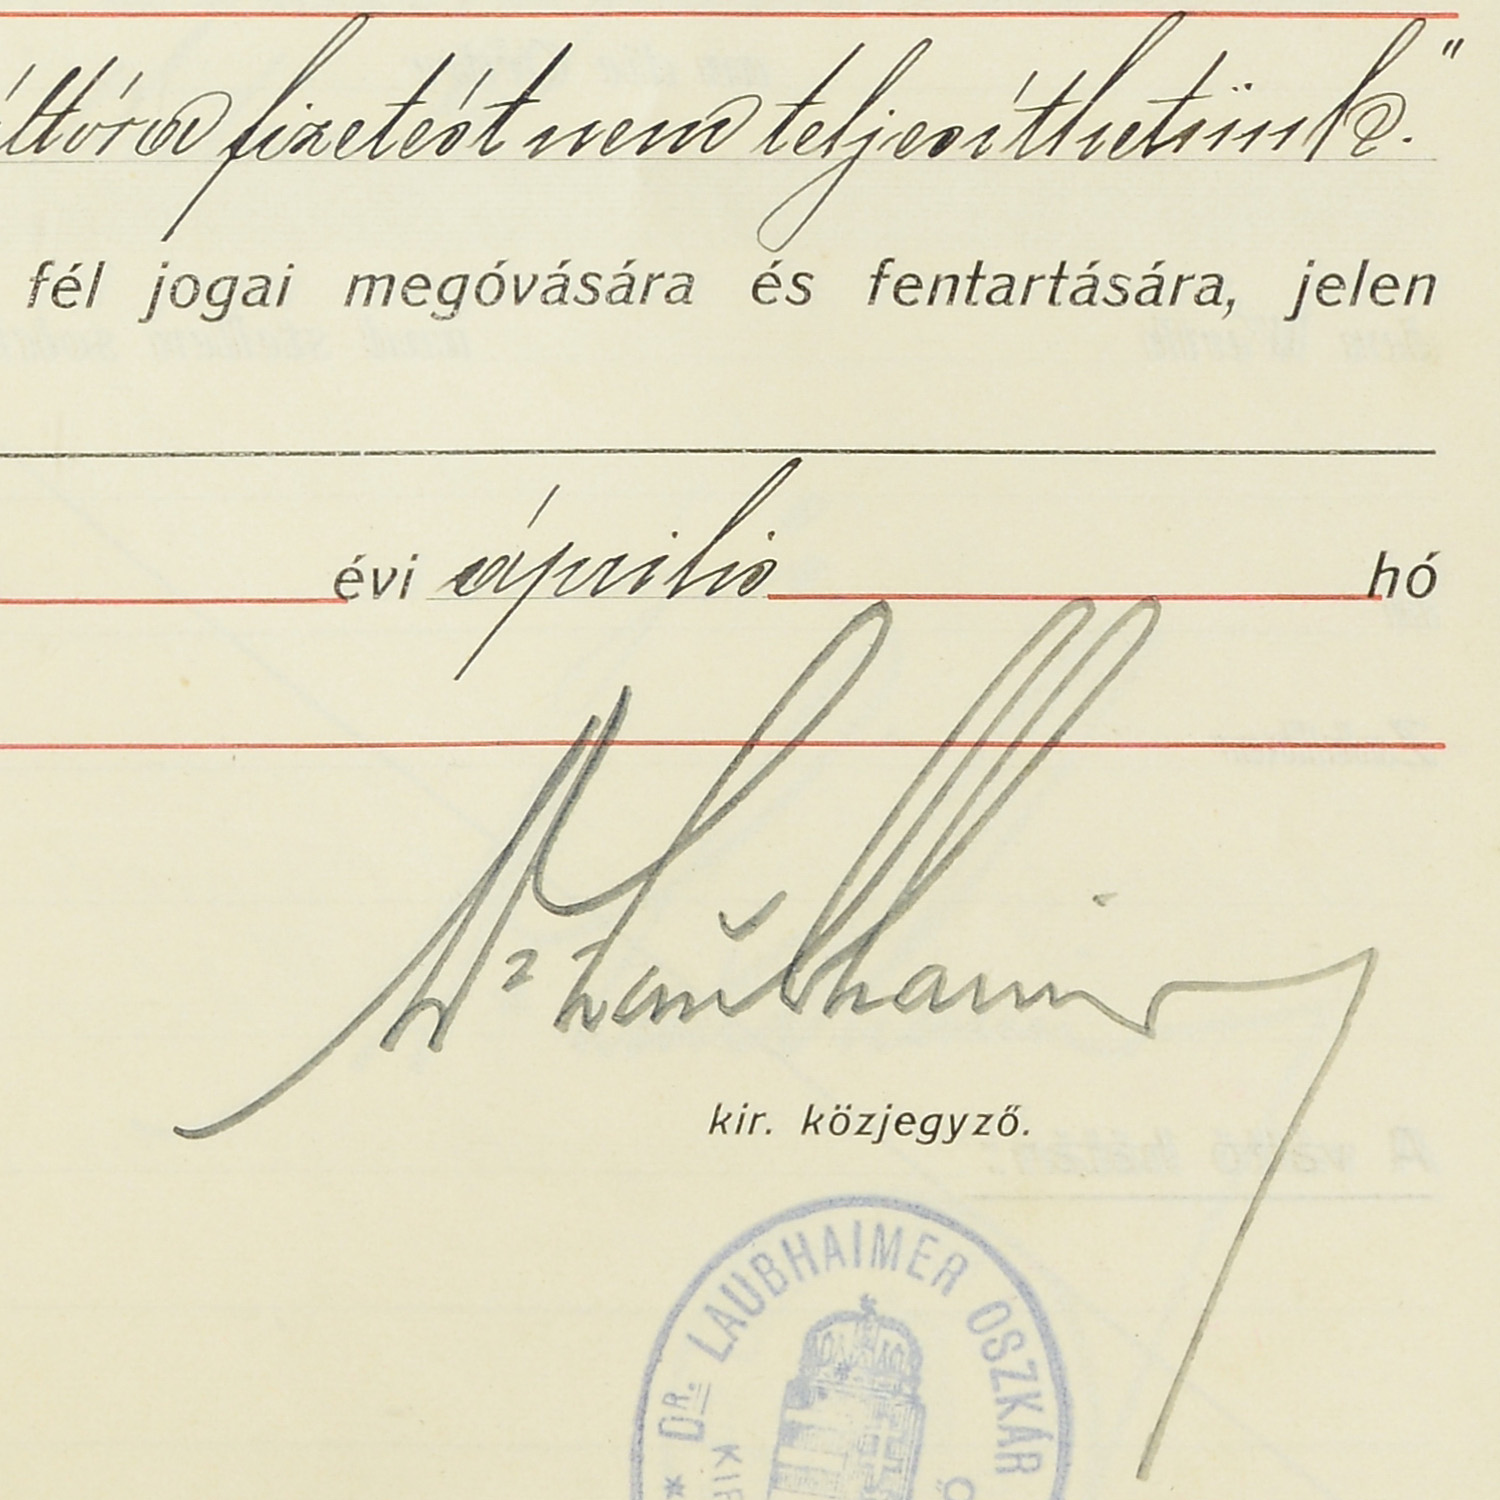 fizetést nem teljesíthetünk."
fél jogai megóvására és fentartására, jelen
évi április hó
Dr Laubhaimer
kir. közjegyző.
* DR. LAUBHAIMER OSZKÁR
KIR